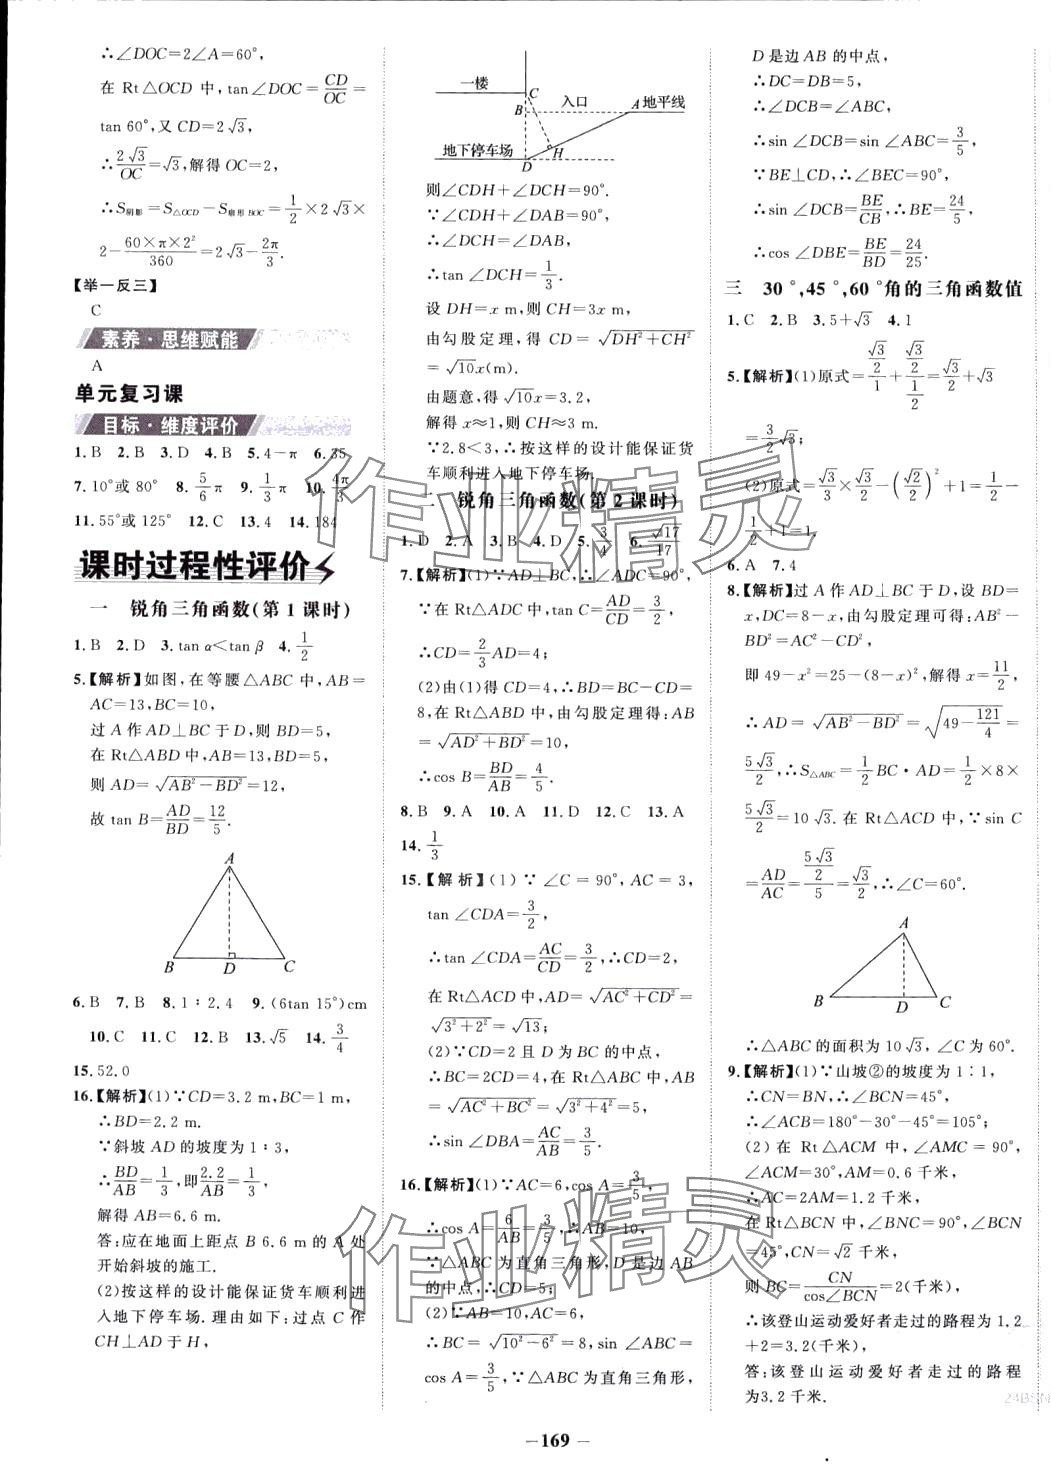 ∴∠DOC=2∠A=60°,
在 Rt△OCD 中,tan∠DOC=CD/OC=
tan 60°,又 CD=2√3,
∴2√3/OC=√3,解得 OC=2,
∴S阴影=S△OCD-S扇形BOC=1/2×2√3×
2-60×π×2²/360=2√3-2π/3.
【举一反三】
C
素养·思维赋能
A
单元复习课
目标·维度评价
1.B 2.B 3.D 4.B 5.4-π 6.35
7.10°或 80° 8.5/6π 9.1/3π 10.4π/3
11.55°或 125° 12.C 13.4 14.184
课时过程性评价
一 锐角三角函数(第 1 课时)
1.B 2.D 3.tan α<tan β 4.1/2
5.【解析】如图,在等腰△ABC 中,AB=
AC=13,BC=10,
过 A 作 AD⊥BC 于 D,则 BD=5,
在 Rt△ABD 中,AB=13,BD=5,
则 AD=√(AB²-BD²)=12,
故 tan B=AD/BD=12/5.
A
B D C
6.B 7.B 8.1∶2.4 9.(6tan 15°)cm
10.C 11.C 12.B 13.√5 14.3/4
15.52.0
16.【解析】(1)∵CD=3.2 m,BC=1 m,
∴BD=2.2 m.
∵斜坡 AD 的坡度为 1∶3,
∴BD/AB=1/3,即2.2/AB=1/3,
解得 AB=6.6 m.
答:应在地面上距点 B 6.6 m 的 A 处
开始斜坡的施工.
(2)按这样的设计能保证货车顺利进
入地下停车场.理由如下:过点 C 作
CH⊥AD 于 H,
一楼 C
B 入口 A 地平线
地下停车场 H
D
则∠CDH+∠DCH=90°.
∵∠CDH+∠DAB=90°,
∴∠DCH=∠DAB,
∴tan∠DCH=1/3.
设 DH=x m,则 CH=3x m,
由勾股定理,得 CD=√(DH²+CH²)
=√10x(m).
由题意,得√10x=3.2,
解得 x≈1,∴CH≈3 m.
∵2.8<3,∴按这样的设计能保证货
车顺利进入地下停车场.
二 锐角三角函数(第 2 课时)
1.D 2.A 3.B 4.D 5.3/4 6.√17/17
7.【解析】(1)∵AD⊥BC,∴∠ADC=90°.
∵在 Rt△ADC 中,tan C=AD/CD=3/2,
∴CD=2/3AD=4;
(2)由(1)得 CD=4,∴BD=BC-CD=
8,在 Rt△ABD 中,由勾股定理得:AB
=√(AD²+BD²)=10,
∴cos B=BD/AB=4/5.
8.B 9.A 10.A 11.D 12.C 13.A
14.1/3
15.【解析】(1)∵∠C=90°,AC=3,
tan∠CDA=3/2,
∴tan∠CDA=AC/CD=3/2,∴CD=2,
在 Rt△ACD 中,AD=√(AC²+CD²)=
√(3²+2²)=√13;
(2)∵CD=2 且 D 为 BC 的中点,
∴BC=2CD=4,在 Rt△ACB 中,AB=
√(AC²+BC²)=√(3²+4²)=5,
∴sin∠DBA=AC/AB=3/5.
16.【解析】(1)∵AC=6,cos A=3/5,
∴cos A=6/AB=3/5,∴AB=10,
∵△ABC 为直角三角形,D 是边 AB
的中点,∴CD=5;
(2)∵AB=10,AC=6,
∴BC=√(10²-6²)=8,sin∠ABC=
cos A=3/5,∵△ABC 为直角三角形,
D 是边 AB 的中点,
∴DC=DB=5,
∴∠DCB=∠ABC,
∴sin∠DCB=sin∠ABC=3/5,
∵BE⊥CD,∴∠BEC=90°,
∴sin∠DCB=BE/CB,∴BE=24/5,
∴cos∠DBE=BE/BD=24/25.
三 30°,45°,60°角的三角函数值
1.C 2.B 3.5+√3 4.1
5.【解析】(1)原式=(√3/2)/1+(√3/2)/(1/2)=√3/2+√3
=3/2√3;
(2)原式=√3/3×√3/2-(√2/2)²+1=1/2-
1/2+1=1.
6.A 7.4
8.【解析】过 A 作 AD⊥BC 于 D,设 BD=
x,DC=8-x,由勾股定理可得:AB²-
BD²=AC²-CD²,
即 49-x²=25-(8-x)²,解得 x=11/2,
∴AD=√(AB²-BD²)=√(49-121/4)=
5√3/2,∴S△ABC=1/2BC·AD=1/2×8×
5√3/2=10√3.在 Rt△ACD 中,∵sin C
=AD/AC=(5√3/2)/5=√3/2,∴∠C=60°.
A
B D C
∴△ABC 的面积为 10√3,∠C 为 60°.
9.【解析】(1)∵山坡②的坡度为 1∶1,
∴CN=BN,∴∠BCN=45°,
∴∠ACB=180°-30°-45°=105°;
(2)在 Rt△ACM 中,∠AMC=90°,
∠ACM=30°,AM=0.6 千米,
∴AC=2AM=1.2 千米,
在 Rt△BCN 中,∠BNC=90°,∠BCN
=45°,CN=√2 千米,
则 BC=CN/cos∠BCN=2(千米),
∴该登山运动爱好者走过的路程为 1.2
+2=3.2(千米),
答:该登山运动爱好者走过的路程
为3.2 千米.
-169-
作业精灵
作业精灵